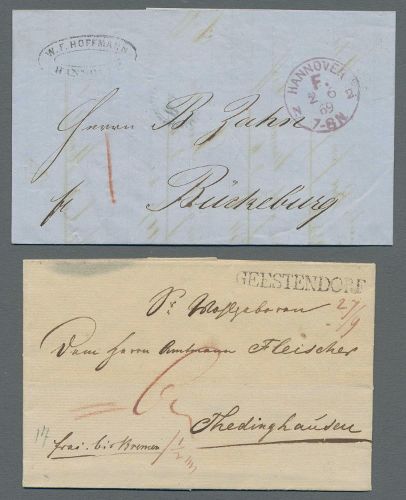 W. F. HOFFMANN
HANNOVER
HANNOVER
F.
69
7-8 N
Herrn B Zahn
1
fr
Bückeburg
GEESTENDORF
Sr Wohlgeboren
27/9
Dem Herrn Amtmann Fleischer
Thedinghausen
frei. bis Bremen